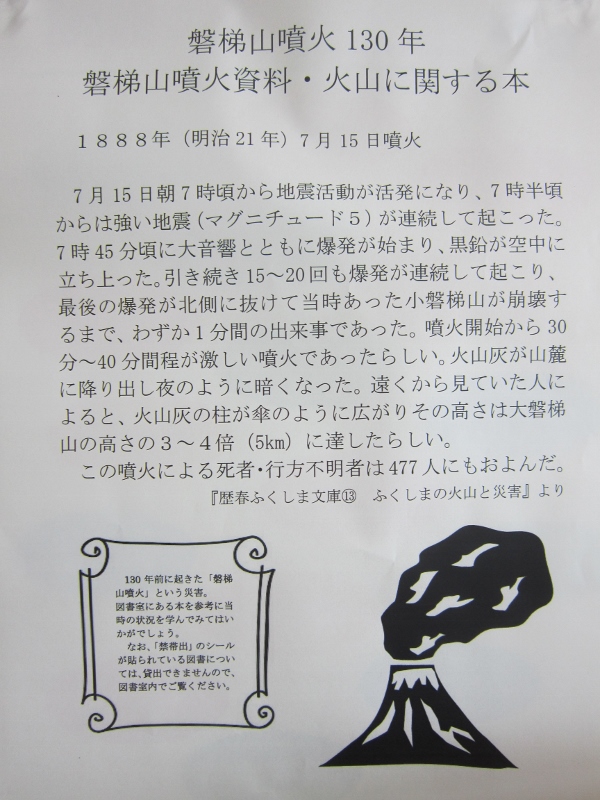 磐梯山噴火130年
磐梯山噴火資料・火山に関する本
1888年（明治21年）7月15日噴火
7月15日朝7時頃から地震活動が活発になり、7時半頃
からは強い地震（マグニチュード5）が連続して起こった。
7時45分頃に大音響とともに爆発が始まり、黒鉛が空中に
立ち上った。引き続き15～20回も爆発が連続して起こり、
最後の爆発が北側に抜けて当時あった小磐梯山が崩壊す
るまで、わずか1分間の出来事であった。噴火開始から30
分～40分間程が激しい噴火であったらしい。火山灰が山麓
に降り出し夜のように暗くなった。遠くから見ていた人に
よると、火山灰の柱が傘のように広がりその高さは大磐梯
山の高さの3～4倍（5km）に達したらしい。
この噴火による死者・行方不明者は477人にもおよんだ。
『歴春ふくしま文庫⑬　ふくしまの火山と災害』より
130年前に起きた「磐梯
山噴火」という災害。
図書室にある本を参考に当
時の状況を学んでみてはい
かがでしょう。
なお、「禁帯出」のシール
が貼られている図書につい
ては、貸出できませんので、
図書室内でご覧ください。